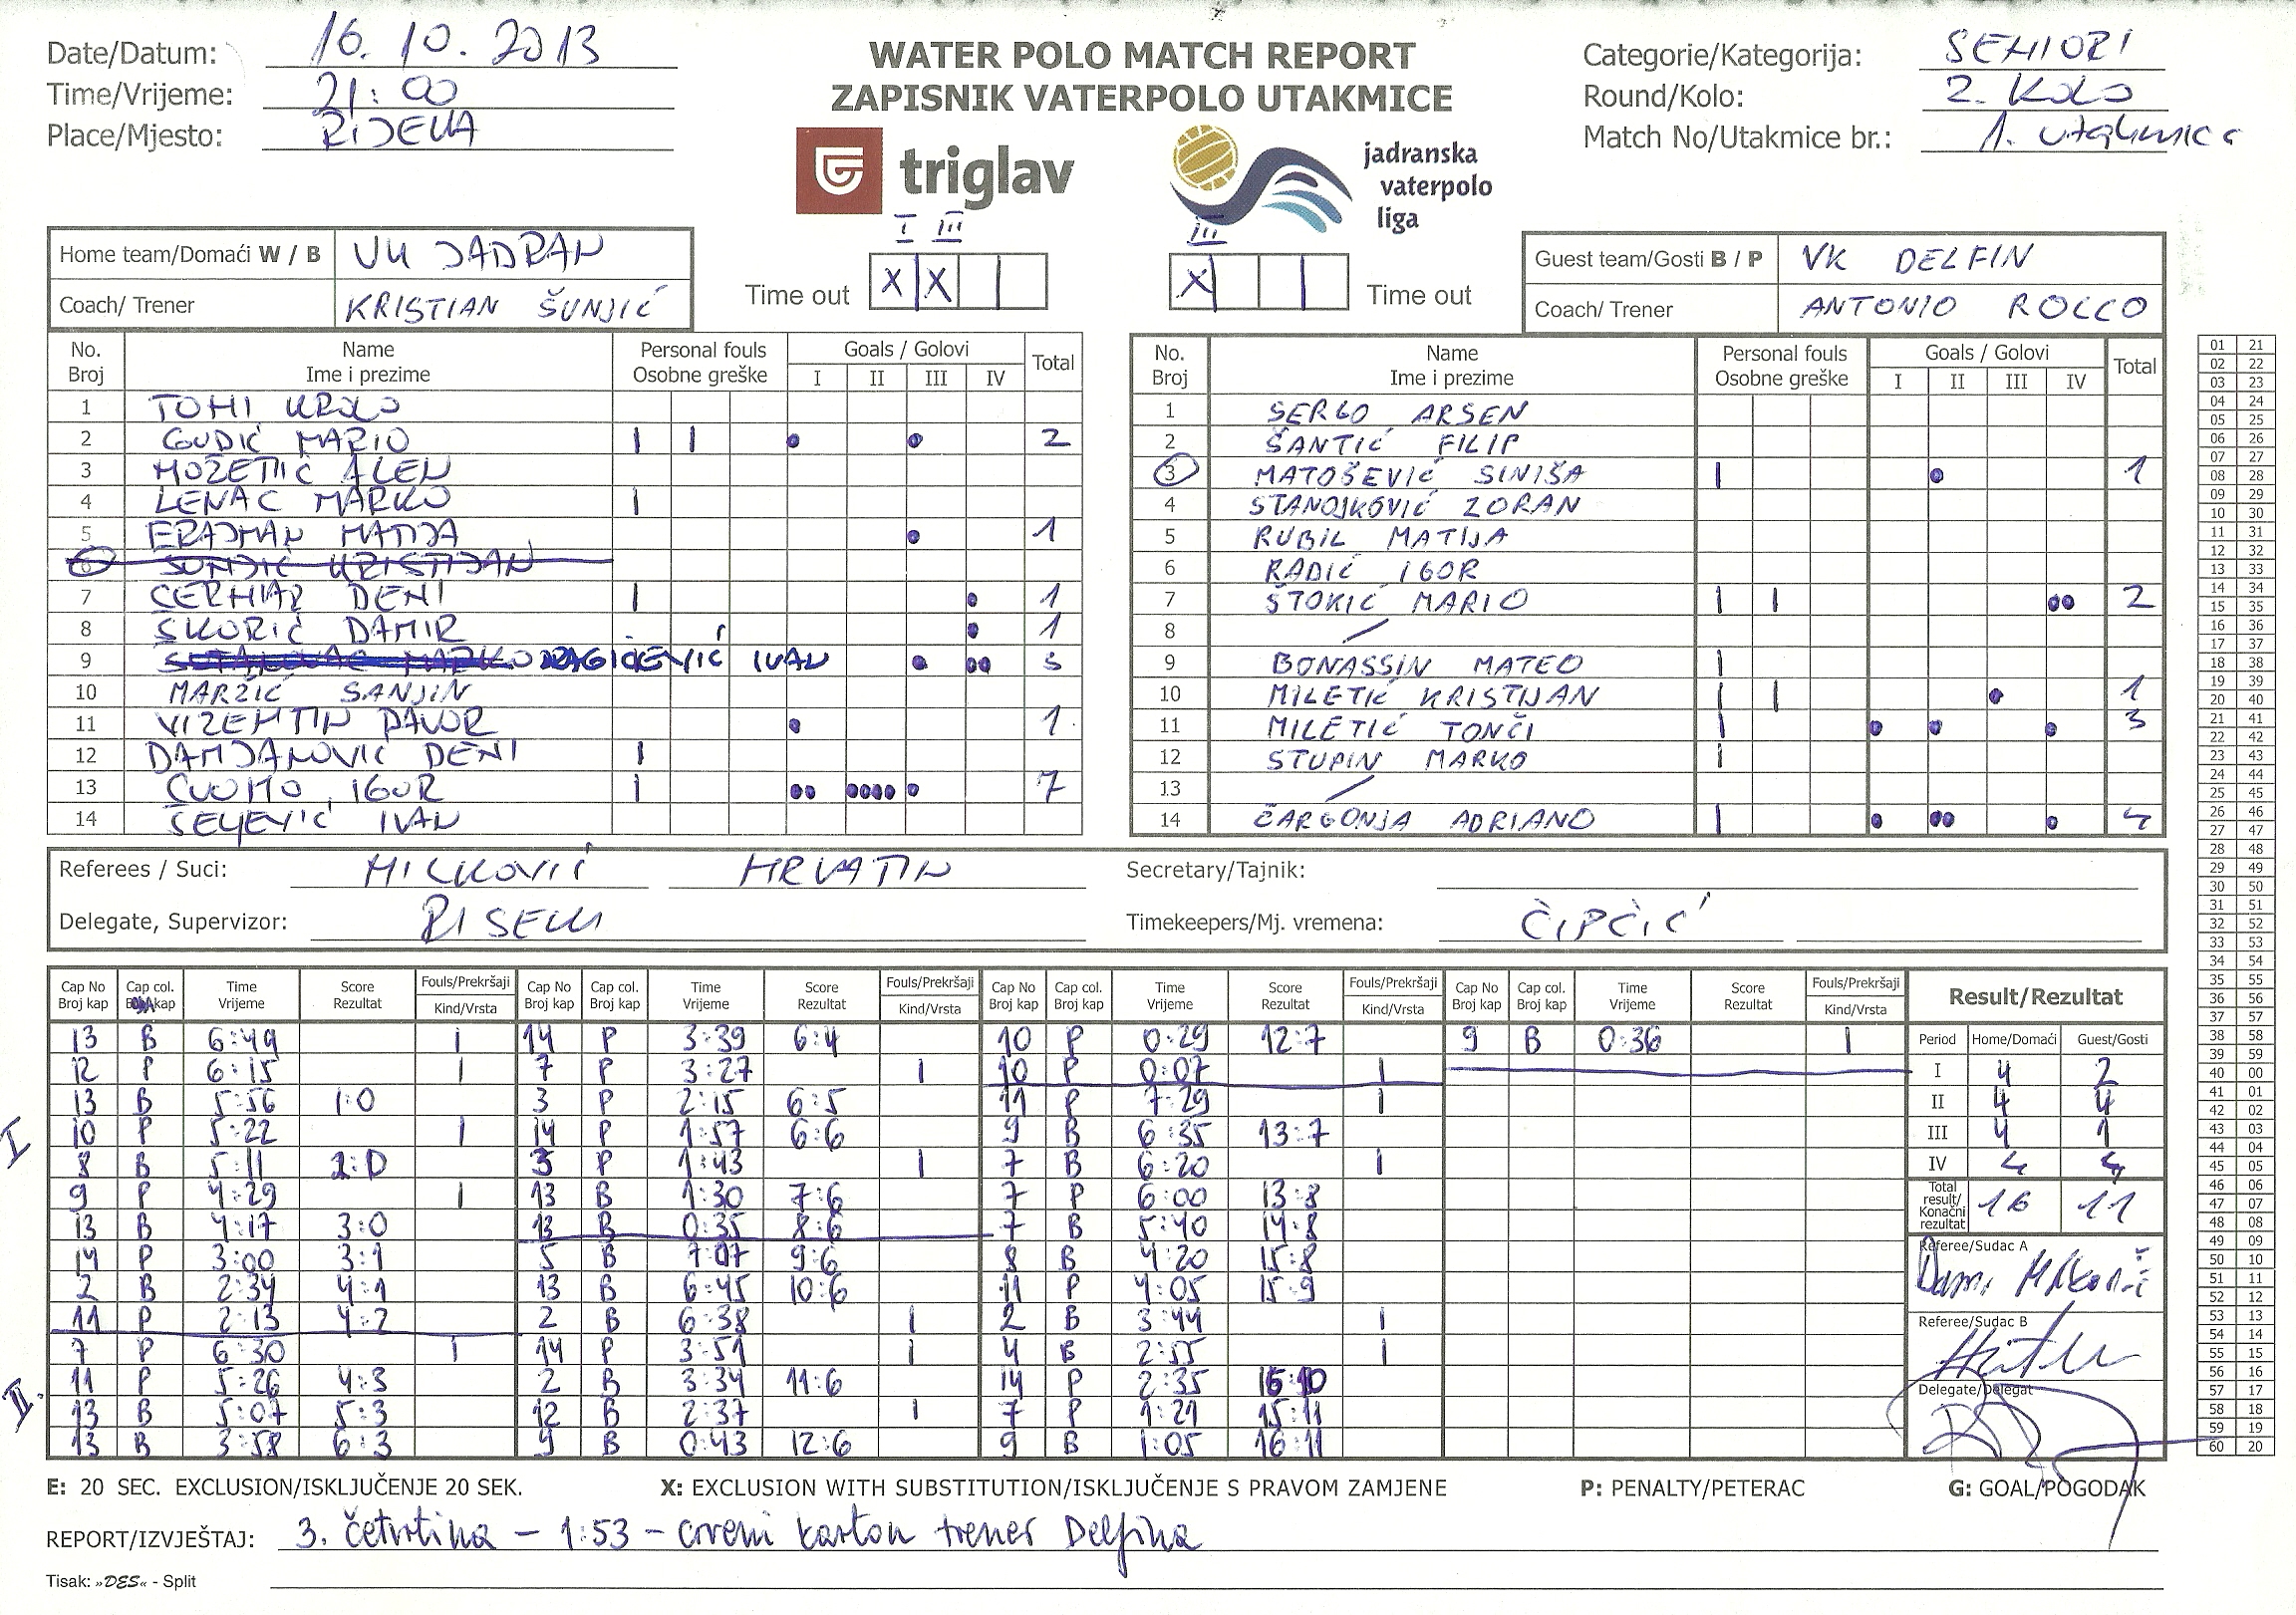 Date/Datum: 16. 10. 2013
Time/Vrijeme: 21:00
Place/Mjesto: RIJEKA
WATER POLO MATCH REPORT
ZAPISNIK VATERPOLO UTAKMICE
triglav
jadranska
vaterpolo
liga
Categorie/Kategorija: SENIORI
Round/Kolo: 2. KOLO
Match No/Utakmice br.: 1. utakmica
Home team/Domaći W / B VK JADRAN
Coach/ Trener KRISTIAN ŠUNJIĆ
I III
Time out X X
III
X Time out
Guest team/Gosti B / P VK DELFIN
Coach/ Trener ANTONIO ROCCO
No. Broj Name Ime i prezime Personal fouls Osobne greške Goals / Golovi I II III IV Total
1 TOMI KROLO
2 GUDIĆ MARIO | | 2
3 MOŽETIĆ ALEN
4 LENAC MARKO |
5 ERAJMAN MATIJA 1
6 ŠUNJIĆ KRISTIJAN
7 CERNIAR DENI | 1
8 ŠKORIĆ DAMIR 1
9 DRAGIČEVIĆ IVAN 3
10 MARŽIĆ SANJIN
11 VIZENTIN DAVOR 1
12 DAMJANOVIĆ DENI |
13 CUOMO IGOR | 7
14 ŠELJEVIĆ IVAN
No. Broj Name Ime i prezime Personal fouls Osobne greške Goals / Golovi I II III IV Total
1 SERGO ARSEN
2 ŠANTIĆ FILIP
3 MATOŠEVIĆ SINIŠA | 1
4 STANOJKOVIĆ ZORAN
5 RUBIL MATIJA
6 RADIĆ IGOR
7 ŠTOKIĆ MARIO | | 2
8 /
9 BONASSIN MATEO |
10 MILETIĆ KRISTIJAN | | 1
11 MILETIĆ TONČI | 3
12 STUPIN MARKO |
13 /
14 ČARGONJA ADRIANO | 4
Referees / Suci: MILKOVIĆ HRVATIN
Secretary/Tajnik:
Delegate, Supervizor:
Timekeepers/Mj. vremena: ČIPČIĆ
Cap No Broj kap Cap col. kap Time Vrijeme Score Rezultat Fouls/Prekršaji Kind/Vrsta
I
13 B 6:49 |
12 P 6:15 |
13 B 5:56 1:0
10 P 5:22 |
8 B 5:11 2:0
9 P 4:29 |
13 B 4:17 3:0
14 P 3:00 3:1
2 B 2:34 4:1
11 P 2:13 4:2
II.
7 P 6:30 |
11 P 5:26 4:3
13 B 5:07 5:3
13 B 3:58 6:3
Cap No Broj kap Cap col. Broj kap Time Vrijeme Score Rezultat Fouls/Prekršaji Kind/Vrsta
14 P 3:39 6:4
7 P 3:27 |
3 P 2:15 6:5
14 P 1:57 6:6
3 P 1:43 |
13 B 1:30 7:6
13 B 0:35 8:6
5 B 7:07 9:6
13 B 6:45 10:6
2 B 6:38 |
14 P 3:51 |
2 B 3:34 11:6
12 B 2:37 |
9 B 0:43 12:6
Cap No Broj kap Cap col. Broj kap Time Vrijeme Score Rezultat Fouls/Prekršaji Kind/Vrsta
10 P 0:29 12:7
10 P 0:07 |
11 P 7:29 |
9 B 6:35 13:7
7 B 6:20 |
7 P 6:00 13:8
7 B 5:40 14:8
8 B 4:20 15:8
11 P 4:05 15:9
2 B 3:44 |
4 B 2:55 |
14 P 2:35 15:10
7 P 1:21 15:11
9 B 1:05 16:11
Cap No Broj kap Cap col. Broj kap Time Vrijeme Score Rezultat Fouls/Prekršaji Kind/Vrsta
9 B 0:36 |
Result/Rezultat
Period Home/Domaći Guest/Gosti
I 4 2
II 4 4
III 4 1
IV 4 4
Total result/ Konačni rezultat 16 11
Referee/Sudac A
Referee/Sudac B
Delegate/Delegat
01 21
02 22
03 23
04 24
05 25
06 26
07 27
08 28
09 29
10 30
11 31
12 32
13 33
14 34
15 35
16 36
17 37
18 38
19 39
20 40
21 41
22 42
23 43
24 44
25 45
26 46
27 47
28 48
29 49
30 50
31 51
32 52
33 53
34 54
35 55
36 56
37 57
38 58
39 59
40 00
41 01
42 02
43 03
44 04
45 05
46 06
47 07
48 08
49 09
50 10
51 11
52 12
53 13
54 14
55 15
56 16
57 17
58 18
59 19
60 20
E: 20 SEC. EXCLUSION/ISKLJUČENJE 20 SEK. X: EXCLUSION WITH SUBSTITUTION/ISKLJUČENJE S PRAVOM ZAMJENE P: PENALTY/PETERAC G: GOAL/POGODAK
REPORT/IZVJEŠTAJ: 3. četvrtina – 1:53 – crveni karton trener Delfina
Tisak: »DES« - Split